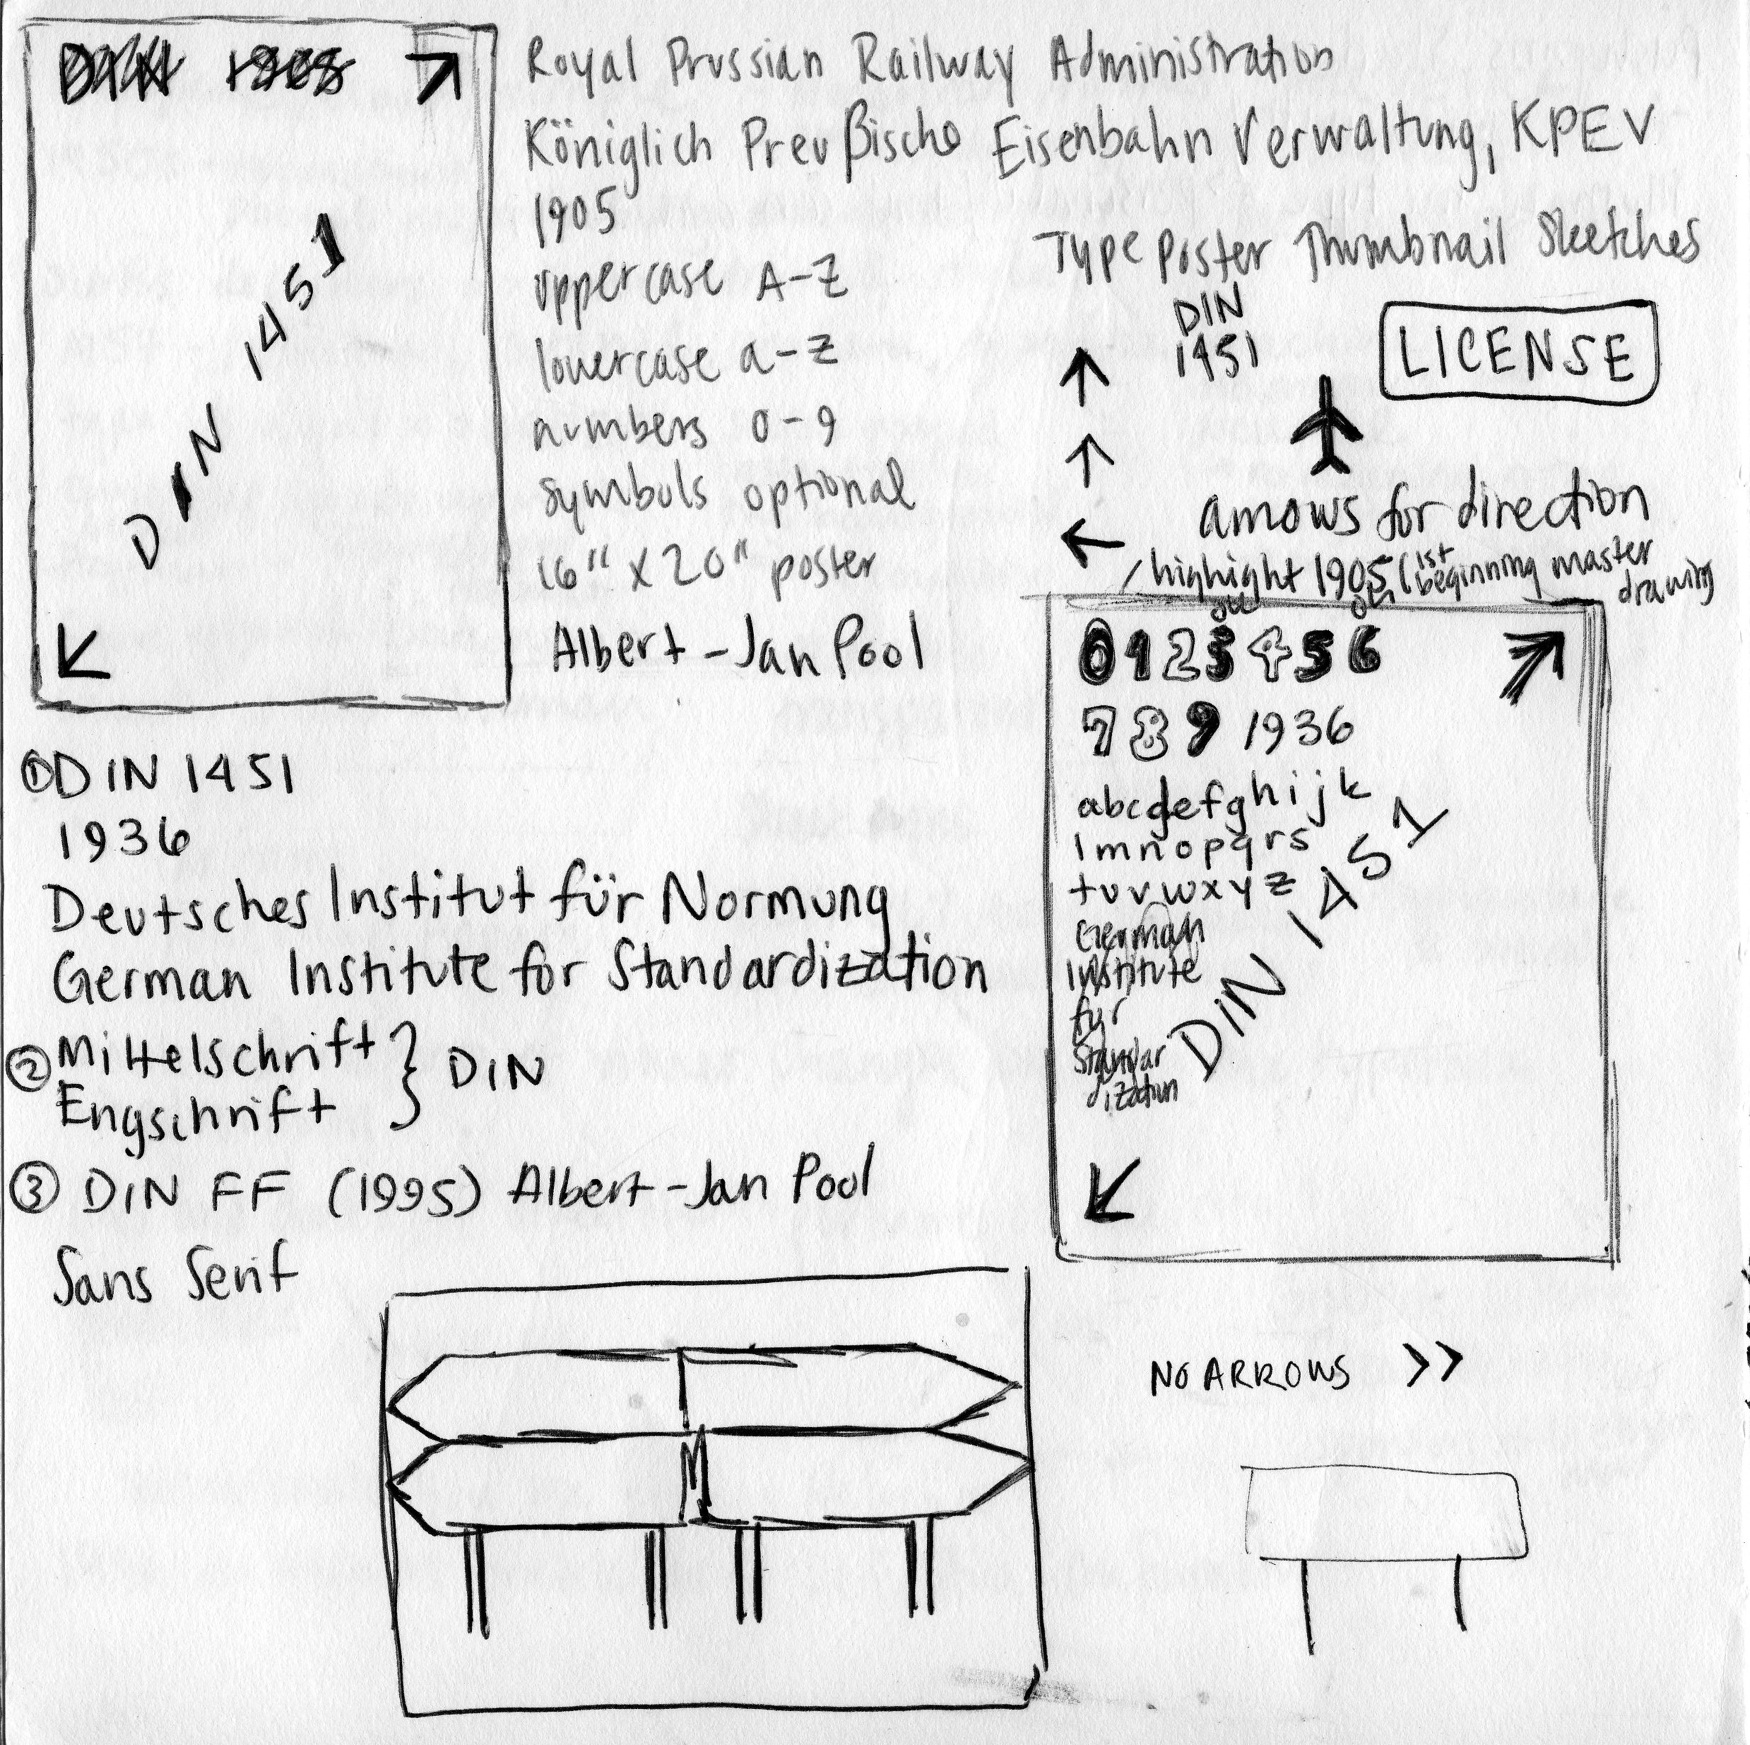 DIN 1451
Royal Prussian Railway Administration
Königlich Preußische Eisenbahn Verwaltung, KPEV
1905
uppercase A-Z
lowercase a-z
numbers 0-9
symbols optional
16" x 20" poster
Albert-Jan Pool
Type Poster Thumbnail Sketches
DIN
1451
LICENSE
arrows for direction
highight 1905 (1st beginning master drawing
0123456
789 1936
abcdefghijk
lmnopqrs
tuvwxyz
German
Institute
für
Standar
dization
DIN 1451
① DIN 1451
1936
Deutsches Institut für Normung
German Institute for Standardization
② Mittelschrift } DIN
Engschrift
③ DIN FF (1995) Albert-Jan Pool
Sans Serif
M
NO ARROWS >>